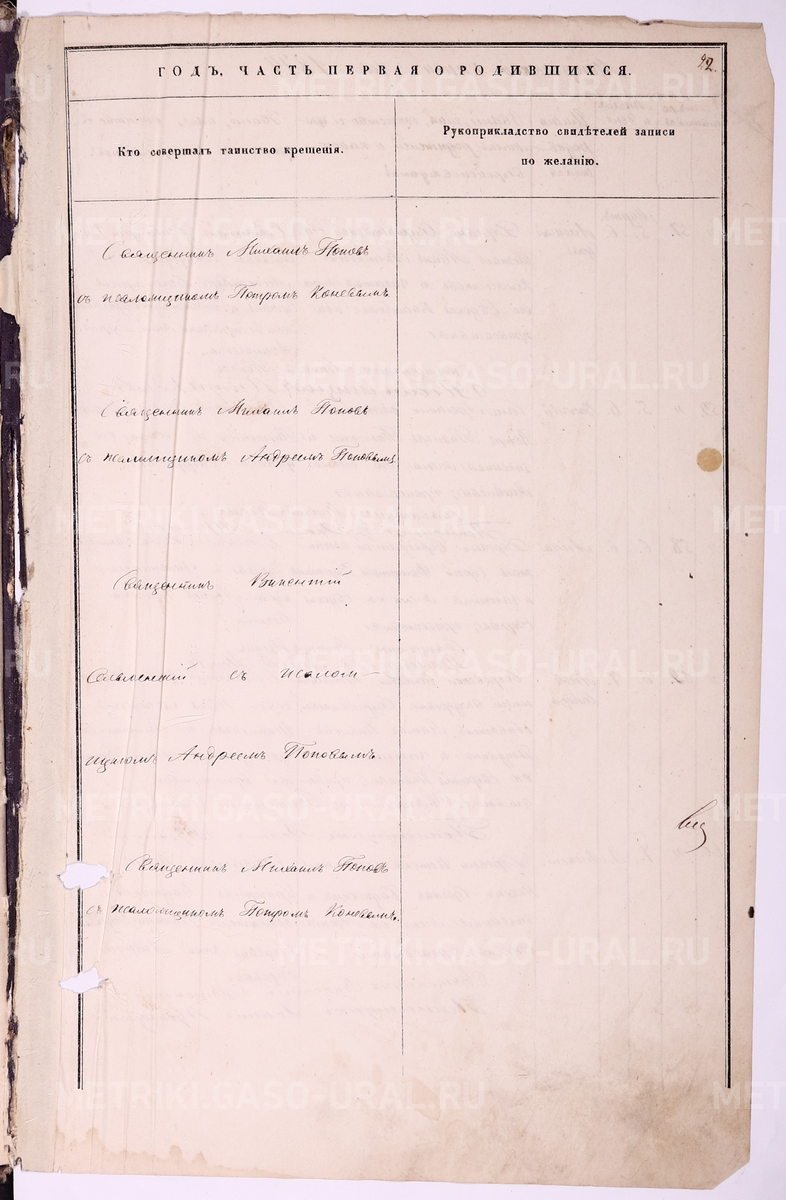 92.
ГОДЪ, ЧАСТЬ ПЕРВАЯ О РОДИВШИХСЯ.
Кто совершалъ таинство крещенія.
Рукоприкладство свидѣтелей записи
по желанію.
Священникъ Михаилъ Поповъ
съ псаломщикомъ Петромъ Коневымъ
Священникъ Михаилъ Поповъ
съ псаломщикомъ Андреемъ Поповымъ
Священникъ Викентій
съ псалом-
щикомъ Андреемъ Поповымъ.
Священникъ Михаилъ Поповъ
съ псаломщикомъ Петромъ Коневымъ.
METRIKI.GASO-URAL.RU